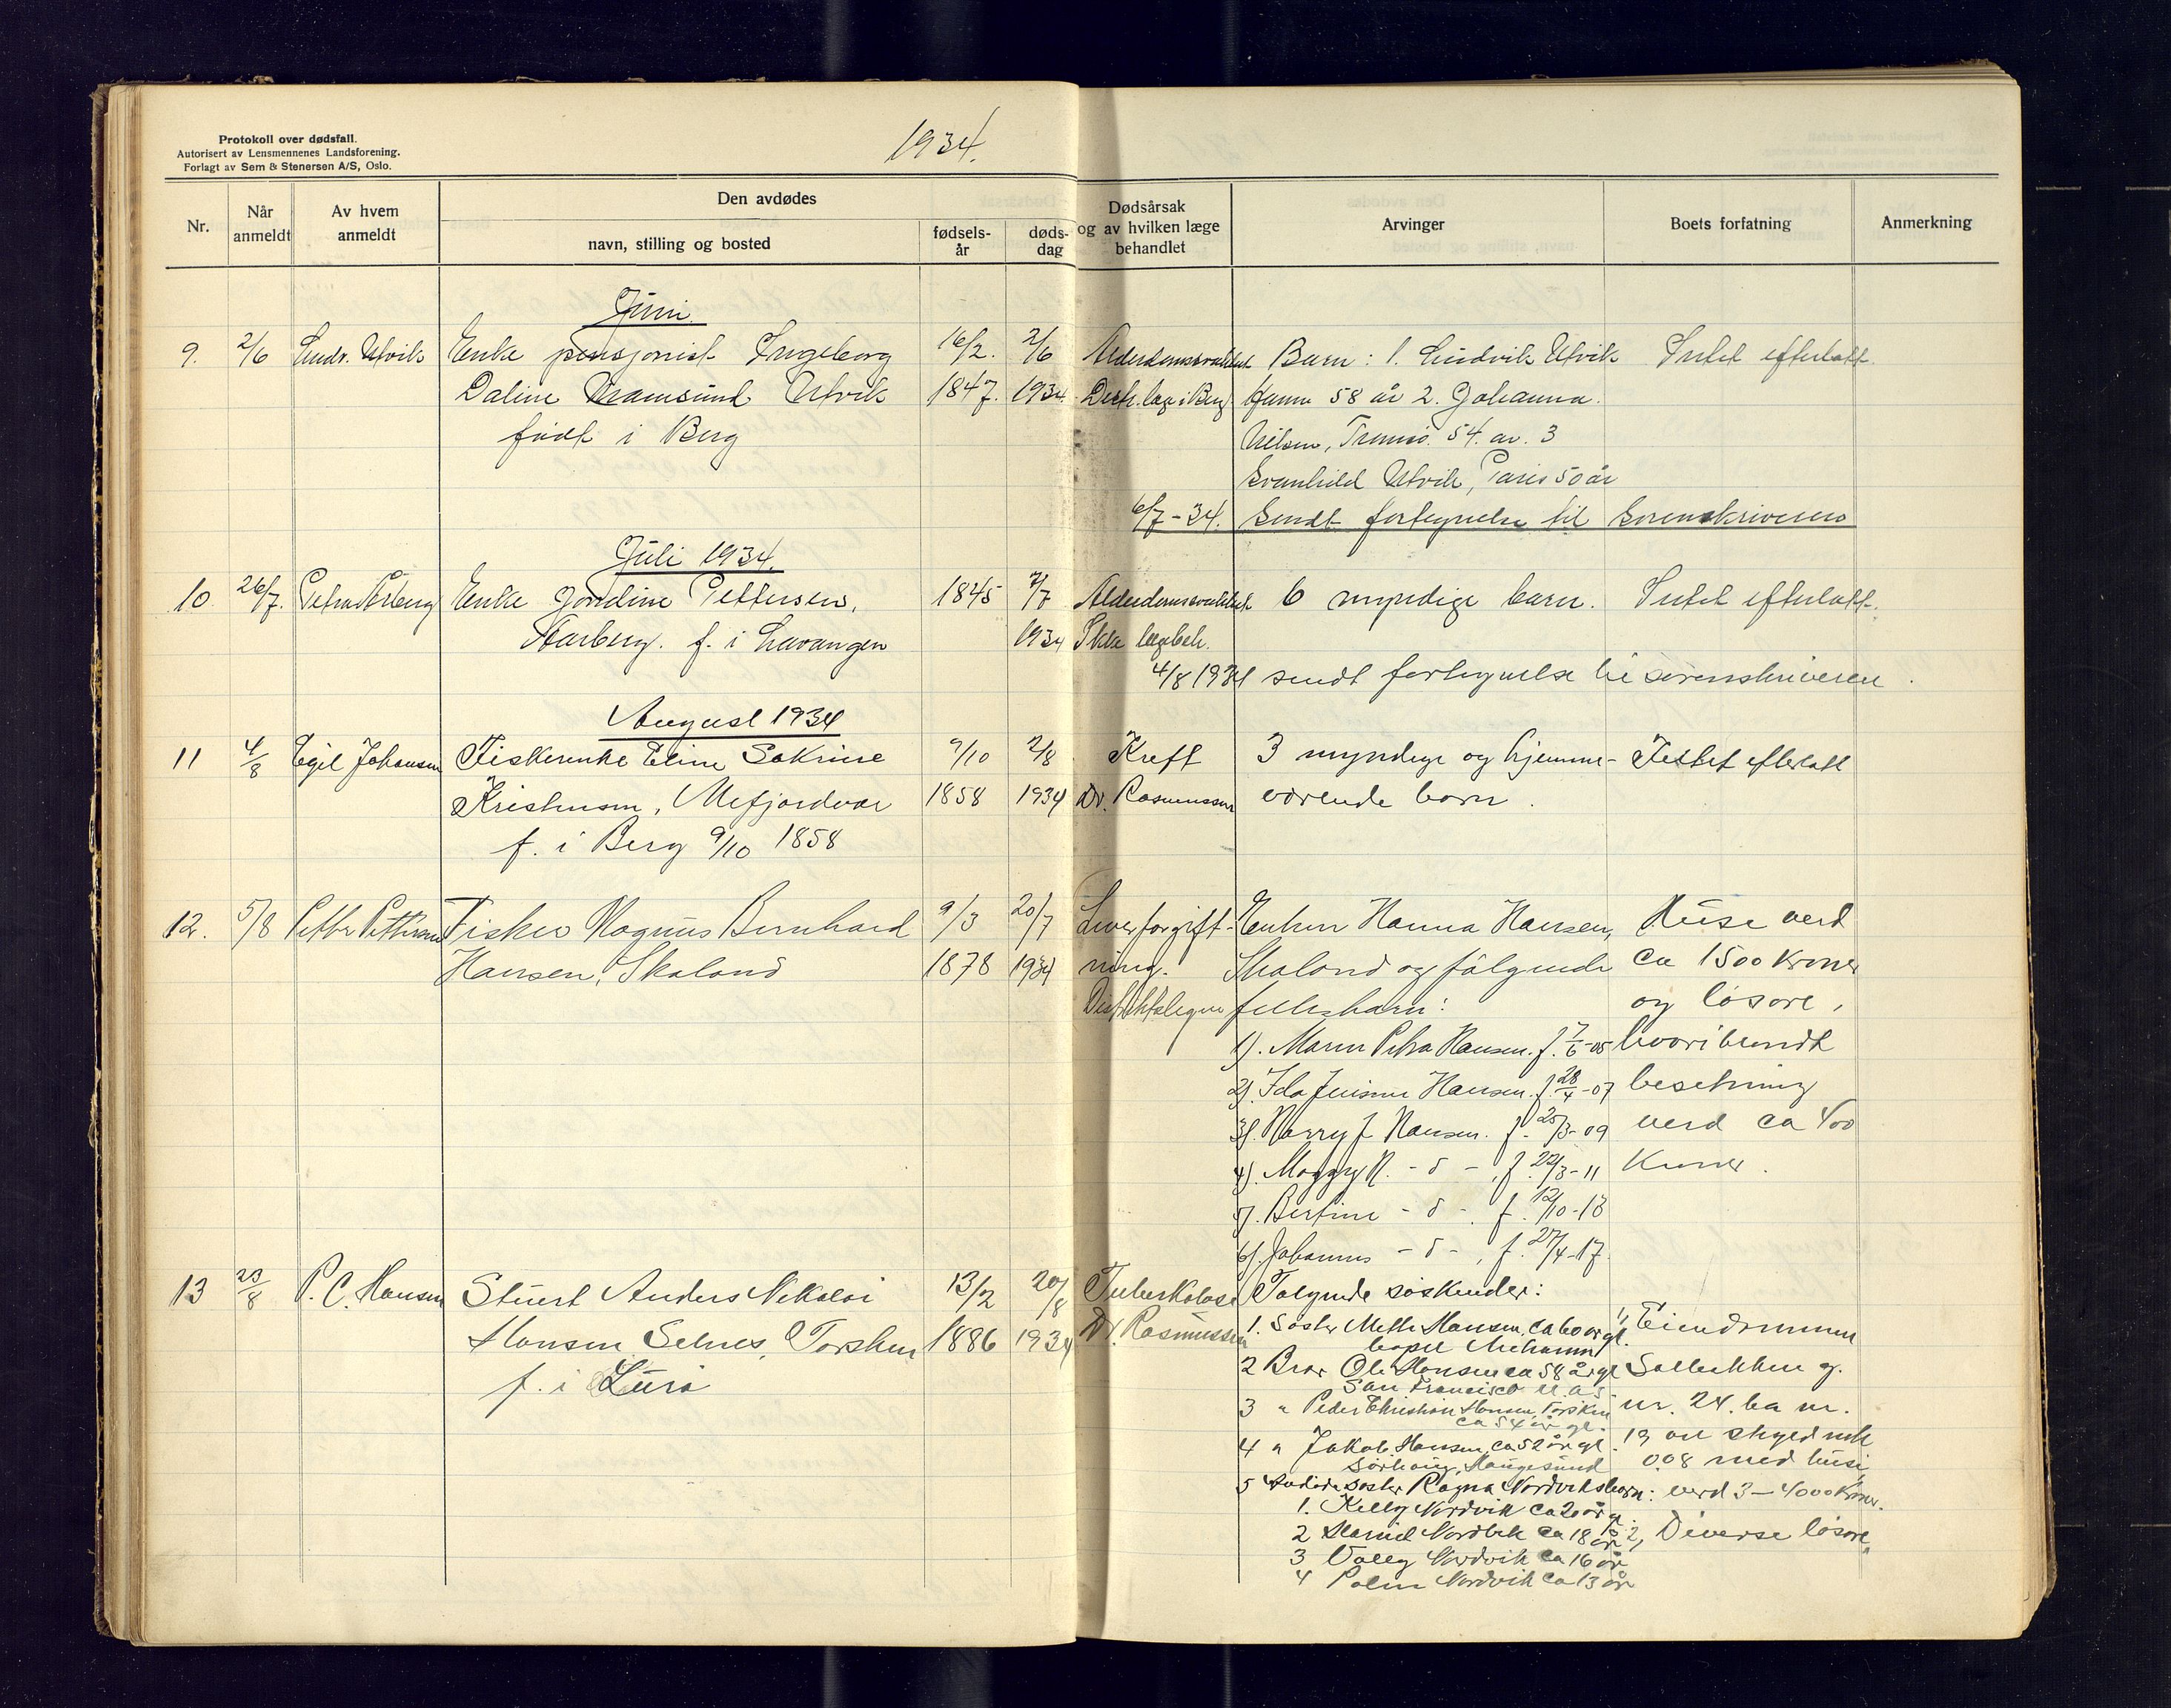 1934.
Protokoll over dødsfall.
Autorisert av Lensmennenes Landsforening.
Forlagt av Sem & Stenersen A/S, Oslo.
Nr.
Når anmeldt
Av hvem anmeldt
Den avdødes
navn, stilling og bosted
fødsels-år
døds-dag
Dødsårsak og av hvilken læge behandlet
Arvinger
Boets forfatning
Anmerkning
Juni
9. 2/6 Ludv. Utvik Enke pensjonist Ingeborg 16/2. 2/6 Barn: 1. Ludvik Utvik Intet efterlatt.
Daline Utvik 1847. 1934. Distr. læge i Berg Hamn 58 år 2. Johanna
født i Berg Nilsen, Tromsø. 54. år. 3
Svanhild Utvik, Paris 50 år
6/7-34. Sendt fortegnelse til Sorenskriveren
Juli 1934.
10. 26/7. Enke Jordine Pettersen, 1845 7/7 6 myndige barn. Intet efterlatt.
Aarberg. f. i Lavangen 1934 Ikke lægebeh.
4/8 1934 sendt fortegnelse til sorenskriveren.
August 1934
11 4/8 Egil Johansen Fiskerenke Eline Sakrine 9/10 2/8 Kreft 3 myndige og hjemme-
Kristensen, Mefjordvær 1858 1934 Dr. Rasmussen værende barn.
f. i Berg 9/10 1858
12. 5/8 Petter Pettersen Fisker Magnus Bernhard 9/3 20/7 Leverforgift- Enken Hanna Hansen, Huse verd
Hansen, Skaland 1878 1934 ning. Skaland og følgende ca 1500 kroner
Distriktslegen fellesbarn: og løsøre,
1). Maren Petra Hansen. f. 7/6-05 hvori
2). Ida Hansen. f. 28/4-07 besetning
3). Harry J Hansen. f. 25/3-09 verd ca 400
4). Maggy H. - d - , f. 22/3-11 Kroner.
5). Bertine - d - , f. 12/10-13
6). Johannes - d - , f. 27/4-17.
13 23/8 P. C. Hansen Stuert Anders Nikolai 13/2 20/8 Tuberkolose Følgende søskender:
Hansen Selnes, Torsken 1886 1934 Dr. Rasmussen 1. Søster Mette Hansen, ca 60 år gl. 1, Eiendommen
f. i Lurø
2 Bror Ole Hansen ca 58 år gl Solbakken g.
San Francisco U.S.A
3 " Peder Christian Hansen, Torsken nr. 24. br nr.
ca 54 år gl.
4 " Jakob Hansen, ca 52 år gl. 13 av skyld mk
Sørhaug, Haugesund 0.08 med huse,
5 Avdøde søster Ragna Nordviks barn: verd 3-4000 kroner.
1. Kelly Nordvik ca 20 år gl.
2 Nordvik ca 18 år 2, Diverse løsøre
3 Nordvik ca 16 år
4 Nordvik ca 13 år